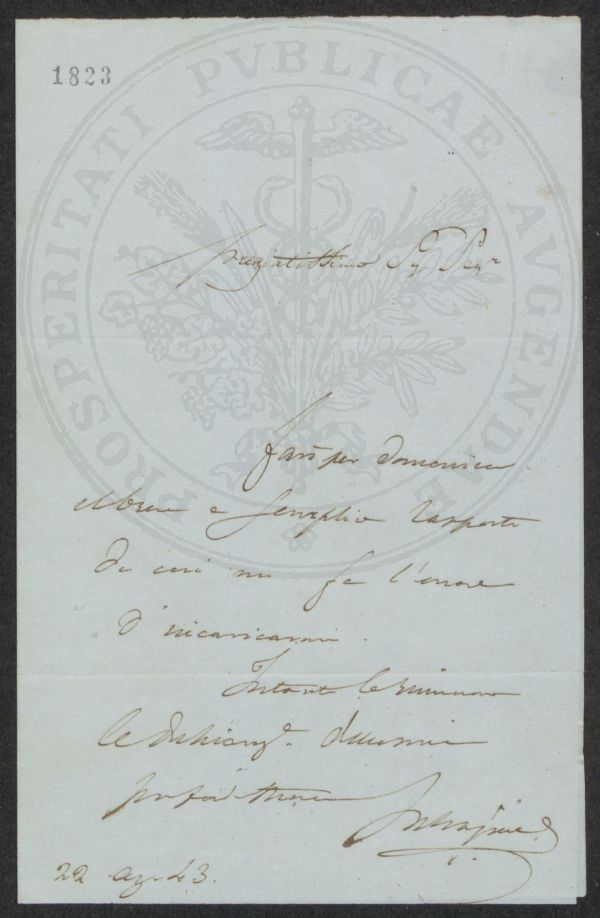 1823
PROSPERITATI PVBLICAE AVGENDAE
Pregiatissimo Sig Seg.r
Farò per domenica
il breve e semplice rapporto
di cui mi fa l'onore
d'incaricarmi.
Intanto le rinnovo
le dichiaraz.i della mia
22 ag. 43.